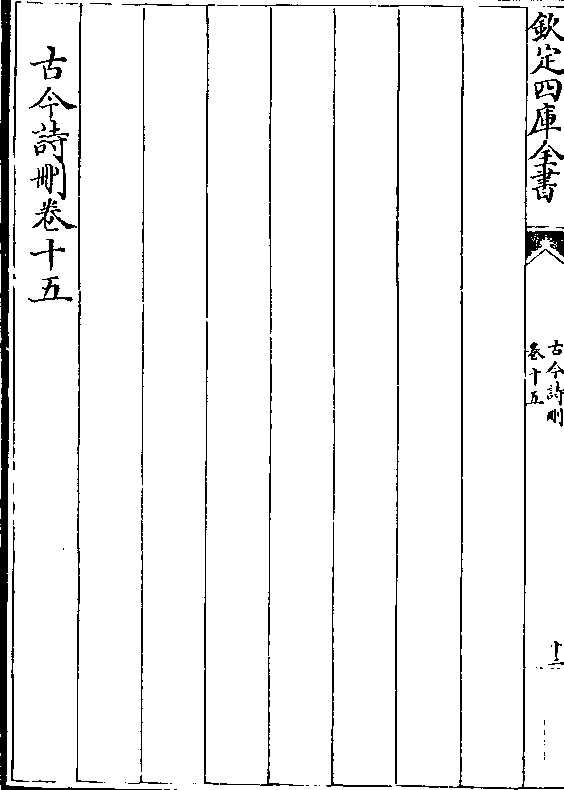 欽定四庫全書
古今詩刪
卷十五
十二
古今詩刪卷十五